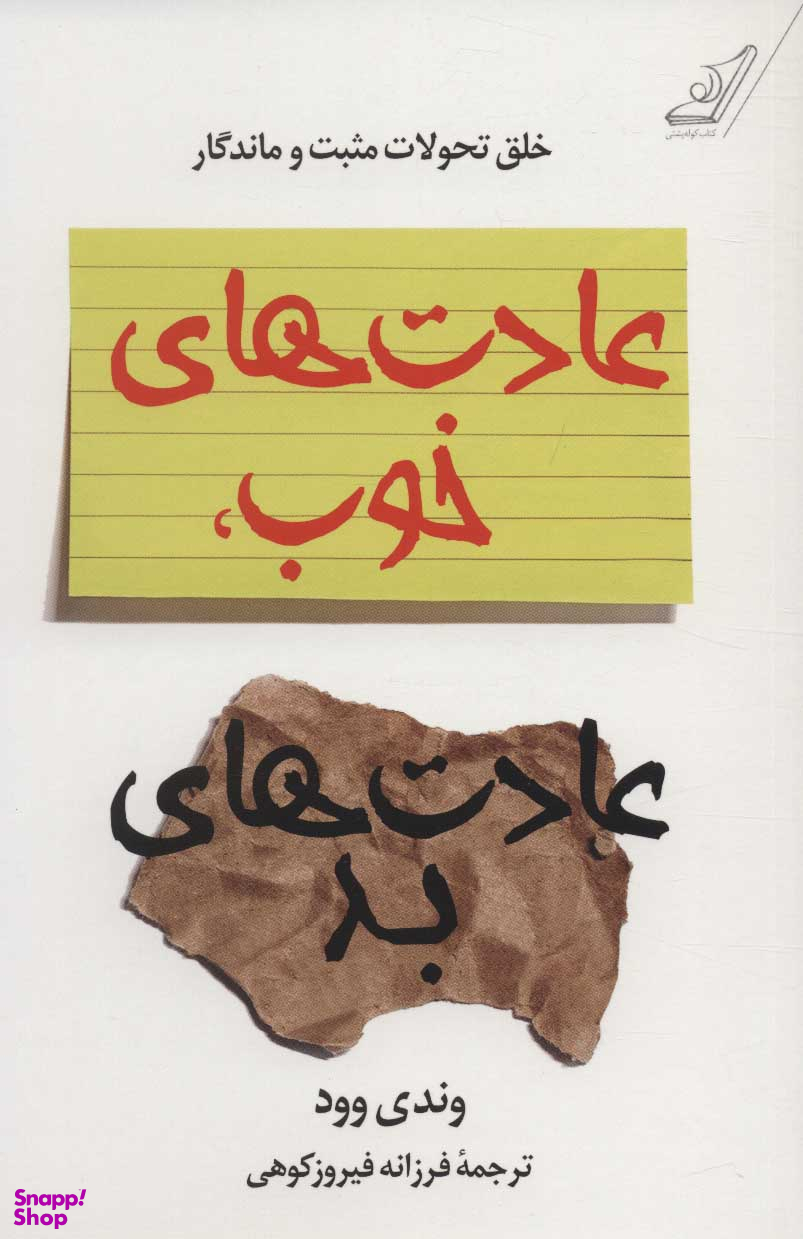 کتاب کوله‌پشتی
خلق تحولات مثبت و ماندگار
عادت‌های
خوب،
عادت‌های
بد
وندی وود
ترجمهٔ فرزانه فیروزکوهی
Snapp!
Shop